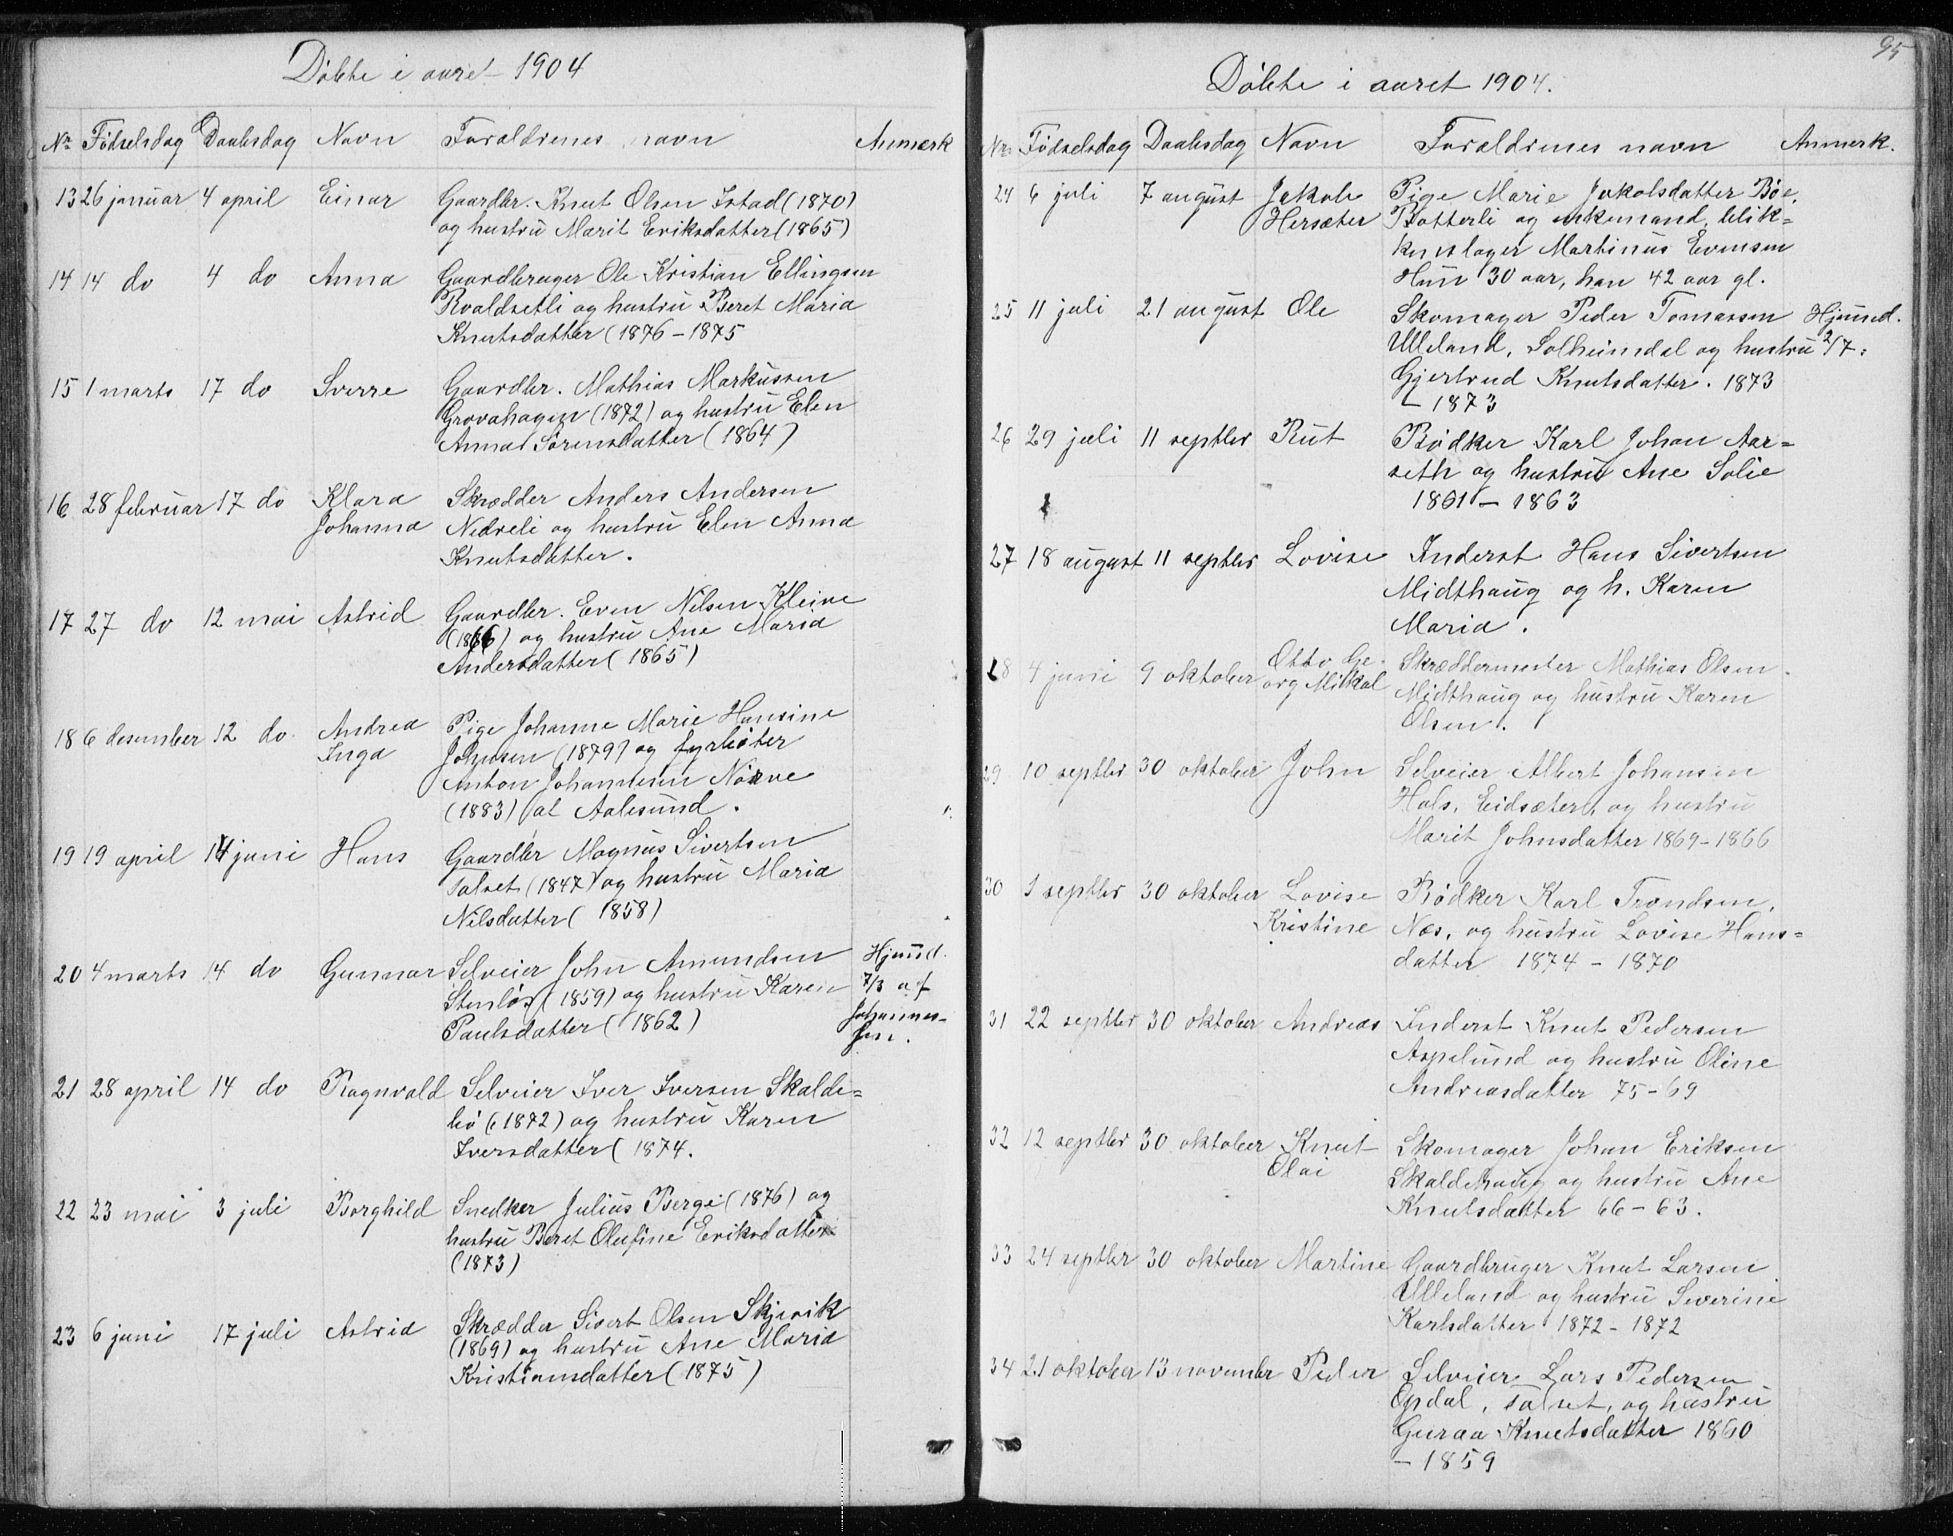 Døbte i aaret 1904
Nr. Fødselsdag Daabsdag Navn Forældrenes navn Anmærk
13 26 januar 4 april Einar Gaardbr. Knut Olsen Istad (1870)
og hustru Marit Eriksdatter (1865)
14 14 do 4 do Anna Gaardbruger Ole Kristian Ellingsen
Roaldsetli og hustru Beret Maria
Knutsdatter (1876 – 1875
15 1 marts 17 do Sverre Gaardbr. Mathias Markussen
Grovahagen (1872) og hustru Elen
Anna Sørensdatter (1864)
16 28 februar 17 do Klara Skrædder Anders Andersen
Johanna Nedreli og hustru Elen Anna
Knutsdatter.
17 27 do 12 mai Astrid Gaardbr. Even Nilsen Kleive
(1866) og hustru Ane Maria
Andersdatter (1865)
18 6 desember 12 do. Andrea Pige Johanne Marie Hansine
Inga Johnsen (1879) og fyrbøter
Anton Johannesen Nørve
(1883) at Aalesund.
19 19 april 14 juni Hans Gaardbr Magnus Sivertsen
Talset (1847) og hustru Maria
Nilsdatter (1858)
20 4 marts 14 do Gunnar Selveier John Amundsen Hjemmed.
Stenløs (1859) og hustru Karen 7/3 af
Paulsdatter (1862) Johannes-
sen.
21 28 april 14 do Ragnvald Selveier Iver Iversen Skalde=
bø (1872) og hustru Karen
Iversdatter (1874.
22 23 mai 3 juli Borghild Snedker Julius Berge (1876) og
hustru Beret Olufine Eriksdatter
(1873)
23 6 juni 17 juli Astrid Skrædder Sivert Olsen Skjevik
(1869) og hustru Ane Maria
Kristiansdatter (1875)
95
Døbte i aaret 1904.
Nr. Fødselsdag Daabsdag Navn Forældrenes navn Anmerk.
24 6 juli 7 august Jakob Pige Marie Jakobsdatter Bøe,
Hersæter Botterli og enkemand, blik=
kenslager Martinus Evensen
Hun 30 aar, han 42 aar gl.
25 11 juli 21 august Ole Skomager Peder Tomassen Hjemmed.
Ulleland, Solheimdal og hustru 2/7.
Gjertrud Knutsdatter. 1873
– 1873
26 29 juli 11 septbr Rut Bødker Karl Johan Aar=
seth og hustru Ane Solie
1861 – 1863
27 18 august 11 septbr Lovise Inderst Hans Sivertsen
Midthaug og h. Karen
Maria.
28 4 juni 9 oktober Otto Ge- Skræddermester Mathias Olsen
org Mikal Midthaug og hustru Karen
Olsen.
29 10 septbr 30 oktober John Selveier Albert Johansen
Hals, Eidsæter, og hustru
Marit Johnsdatter 1869 – 1866
30 1 septbr 30 oktober Lovise Bødker Karl Trondsen,
Kristine Næs, og hustru Lovise Hans=
datter 1874 – 1870
31 22 septbr 30 oktober Andreas Inderst Knut Pedersen
Aspelund og hustru Oline
Andreasdatter 75 – 69
32 12 septbr 30 oktober Knut Skomager Johan Eriksen
Olai Skaldehaug og hustru Ane
Knutsdatter 66 – 63.
33 24 septbr 30 oktober Martine Gaardbruger Knut Larsen
Ulleland og hustru Severine
Karlsdatter 1872 – 1872
34 21 oktober 13 november Peder Selveier Lars Pedersen
Opdal, Talset, og hustru
Guraa Knutsdatter 1860
– 1859